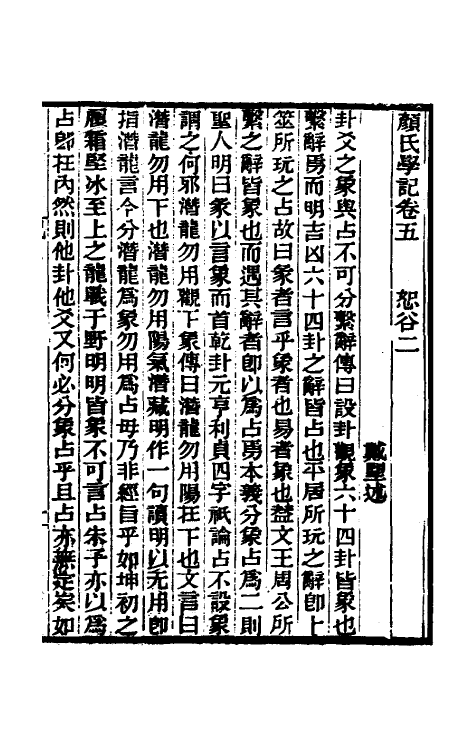 顏氏學記卷五　恕谷二
戴望述
卦爻之象與占不可分繫辭傳曰設卦觀象六十四卦皆象也
繫辭焉而明吉凶六十四卦之辭皆占也平居所玩之辭卽卜
筮所玩之占故曰象者言乎象者也易者象也葢文王周公所
繫之辭皆象也而遇其辭者卽以爲占焉本義分象占爲二則
聖人明曰彖以言象而首乾卦元亨利貞四字祇論占不設象
謂之何邪潛龍勿用觀下象傳曰潛龍勿用陽在下也文言曰
潛龍勿用下也潛龍勿用陽氣潛藏明作一句讀明以无用卽
指潛龍言今分潛龍爲象勿用爲占毋乃非經旨乎如坤初之
履霜堅冰至上之龍戰于野明明皆象不可言占朱子亦以爲
占卽在內然則他卦他爻又何必分象占乎且占亦無定矣如